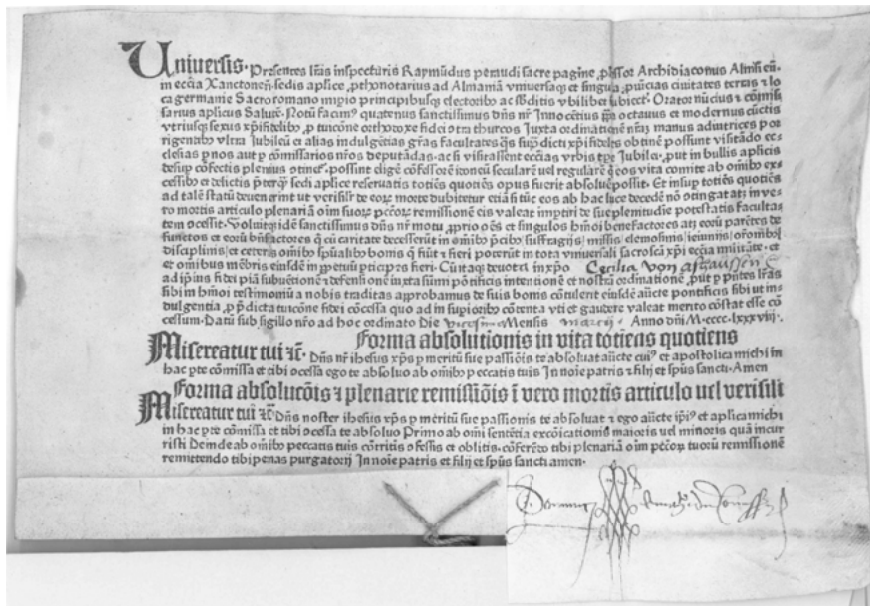 Universis. Presentes lras inspecturis Raymūdus peraudi sacre pagine ꝓfessor Archidiaconus Alnisien.
in ecctia Xanctonen. sedis aplice ꝓthonotarius ad Almaniā vniversaꝫ et singulas ꝓuīcias ciuitates terras ⁊ lo
ca germanie Sacroromano impio principibusꝙ electoribꝰ ac subditis vbilibet subiect. Orator nūcius ⁊ cōmis
sarius aplicus Salutē. Notū facimꝰ quatenus sanctissimus dn̄s nr̄ Innocētius octauus et modernus cūctis
vtriusꝙ sexus xp̄ifidelibꝰ ꝓ tuicōne orthodoxe fidei cōtra thurcos Juxta ordinationē nr̄aꝫ manus adiutrices por
rigentibꝰ vltra Jubileū et alias indulgētias gr̄as facultates supradicti xp̄ifideles obtinē possunt visitādo ec
clesias ꝑ nos aut ꝑ cōmissarios nr̄os deputādas ac si visitassent ecctias vrbis tꝑe Jubilei put in bullis aplicis
desuꝑ cōfectis plenius possint eligē cōfessorē ydoneū secularē uel regularē qui eos vita comite ab oībꝰ ex
cessibꝰ et delictis p̄terꝙ sedi aplice reseruatis totiēs quotiēs opus fuerit absoluē possit. Et insuꝑ totiēs quotiēs
ad talē statū deuenerint ut verisilr̄ de eoꝝ morte dubitetur etiā si tūc eos ab hac luce decedē nō cōtingat atꝫ in ve
ro mortis articulo plenariā oīm suoꝝ pctōꝝ remissionē eis valeat impartiri de sue plenitudie potestatis faculta
tem cōcessit. Voluitꝙ idē sanctissimus dn̄s nr̄ motu ꝓprio oēs et singulos hm̄oi benefactores atꝫ eoꝝ parētes de
functos et eoꝝ bn̄factores qui cū caritate decesserūt in oībꝰ p̄cibꝰ suffragijs missis elemosinis ieiuniis orōnibꝰ
disciplinis et ceteris oībꝰ sp̄ualibꝰ bonis que fiūt ⁊ fieri poterūt in tota vniuersali sacroscā xp̄i ecctia militāte et
et omnibus mēbris eiusdē in ꝑpetuū ꝑticipes fieri. Cū itaꝙ deuota in xp̄o Cecilia von
ad ip̄ius fidei piā subuētionē ⁊ defensionē iuxta sūmi pōtificis intentionē et nostrā ordinationē put ꝑ p̄ntes lr̄as
sibi in hm̄oi testimoniū a nobis traditas approbamus de suis bonis cōtulerit eiusdē aucte pontificis sibi ut in
dulgentia ꝓ p̄dicta tuicōne fidei cōcessa quo ad in suꝑioribꝰ cōtenta vti et gaudere valeat merito cōstat esse cō
cessum. Datū sub sigillo nr̄o ad hoc ordinato Die vicesima Mensis marcij. Anno dn̄i M.cccc.lxxxviij.
Forma absolutionis in vita totiens quotiens
Misereatur tui ⁊c̄. Dn̄s nr̄ ihesus xp̄s ꝑ meritū sue passiōis te absoluat aucte cuiꝰ et apostolica michi in
hac ꝑte cōmissa et tibi cōcessa ego te absoluo ab oībꝰ pctis tuis In noīe patris ⁊ filij et sp̄us sancti. Amen
Forma absolucōis ⁊ plenarie remissiōis ī vero mortis articulo uel verisili
Misereatur tui ⁊c̄ Dn̄s noster ihesus xp̄s ꝑ meritū sue passionis te absoluat ⁊ ego aucte ip̄iꝰ et aplica michi
in hac ꝑte cōmissa et tibi cōcessa te absoluo Primo ab omi sentētia excōicationis maioris vel minoris quā incur
risti Deinde ab oībꝰ peccatis tuis cōtritis cōfessis et oblitis. cōferēdo tibi plenariā oīm pctōꝝ tuoꝝ remissionē
remittendo tibi penas purgatorij In noīe patris et filij et sp̄us sancti amen.